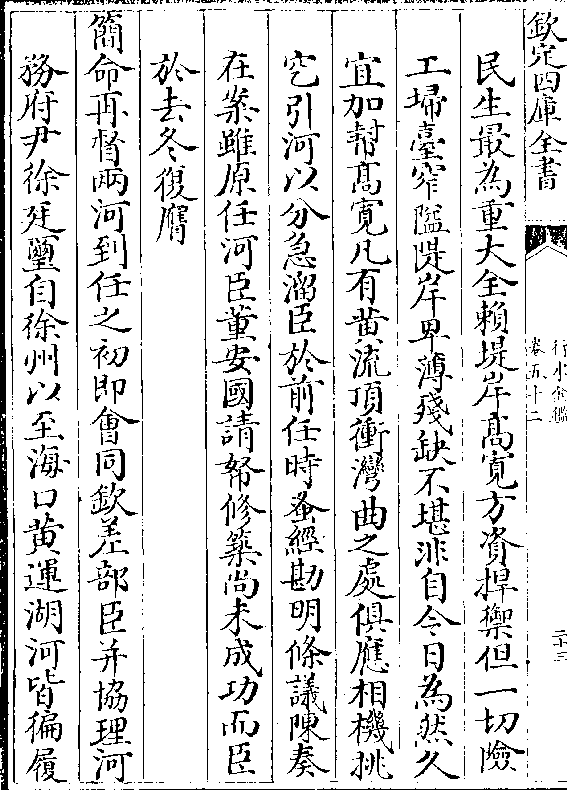 欽定四庫全書
行水金鑑
卷五十二
二十三
民生最為重大全賴堤岸髙寛方資捍禦但一切險
工埽臺窄隘堤岸卑薄殘缺不堪非自今日為然久
宜加幇髙寛凡有黄流頂衝灣曲之處俱應相機挑
穵引河以分急溜臣於前任時蚤經勘明條議陳奏
在案雖原任河臣董安國請帑修築尚未成功而臣
於去冬復膺
簡命再督兩河到任之初即會同欽差部臣并協理河
務府尹徐廷璽自徐州以至海口黄運湖河皆徧履